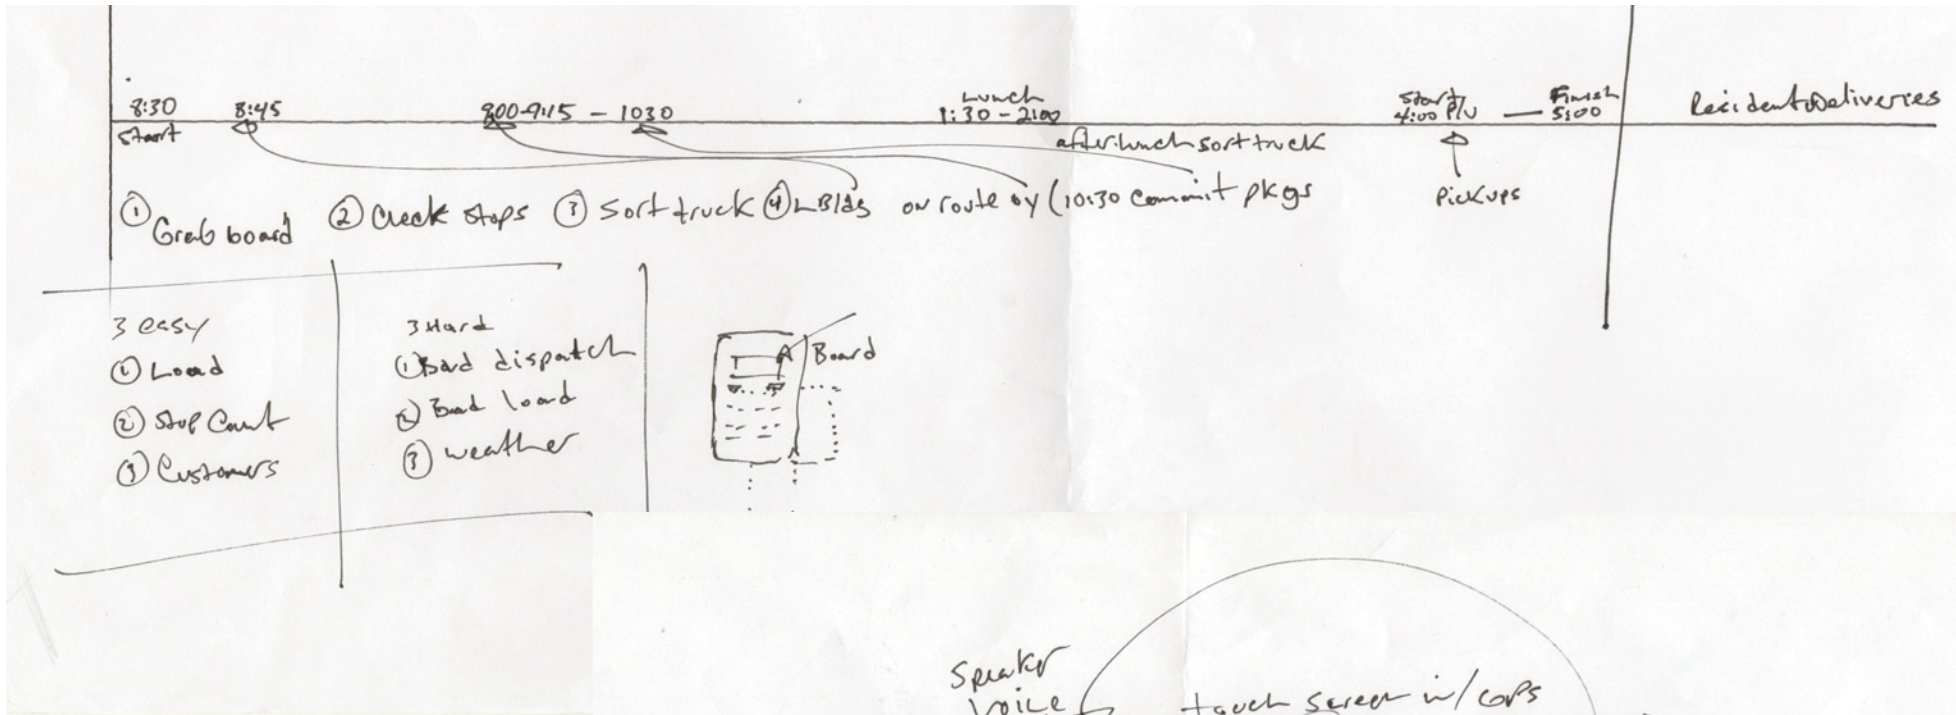 8:30 8:45 900-9:15 – 1030 Lunch 1:30 – 2:00 Start 4:00 P/U — Finish 5:00 Residential Deliveries
Start after lunch sort truck
① Grab board ② Check stops ③ Sort truck ④ on route by (10:30 commit pkgs
Pickups
3 easy
① Load
② Stop Count
③ Customers
3 Hard
① Bad dispatch
② Bad load
③ weather
Board
Speaker
Voice
touch screen w/